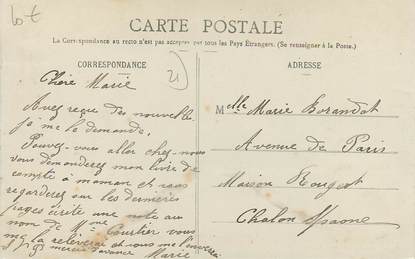 lot
CARTE POSTALE
La Correspondance au recto n'est pas acceptée par tous les Pays Étrangers. (Se renseigner à la Poste.)
CORRESPONDANCE
21
Chère Marie
Avez reçue des nouvelle
je me le demande,
Pouvez-vous aller chez-nous
vous demanderez mon livre de
compte à maman et vous
regarderez sur les dernières
pages écrite une note au
nom de Mme Courtier vous
me la relèverai et vous me l'enverrai
merci d'avance Marie
ADRESSE
Melle Marie Borandot
Avenue de Paris
Maison Rougeot
Chalon s/Saone